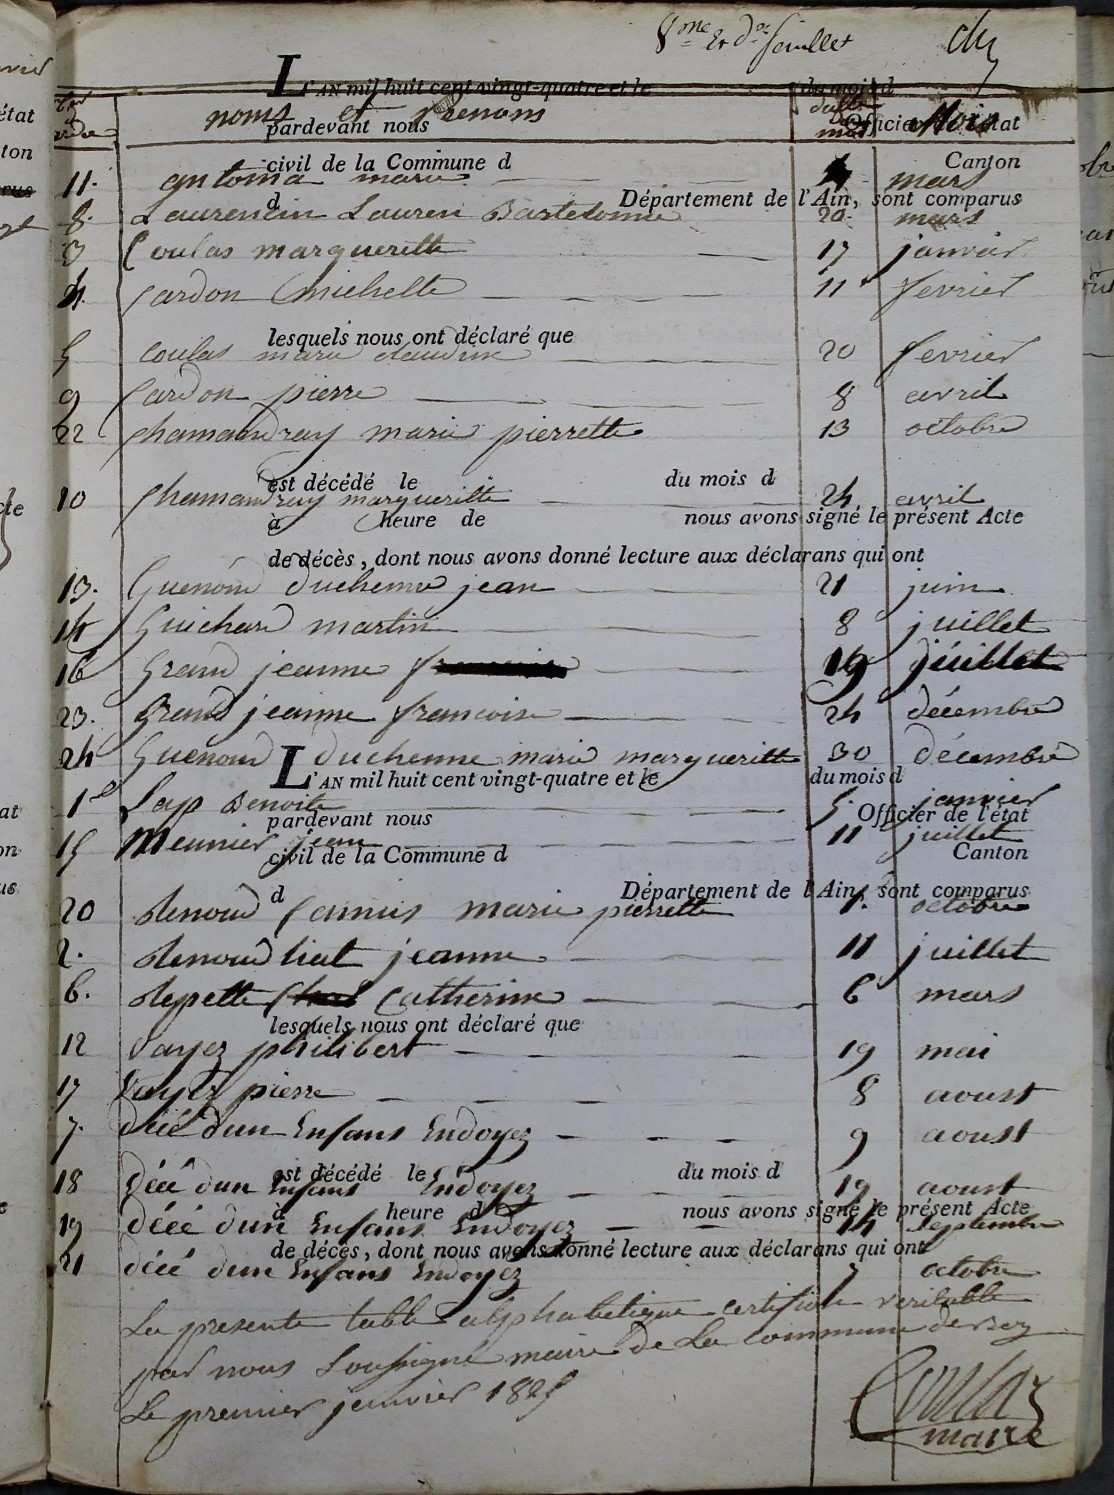 8me et der feuillet
L'AN mil huit cent vingt-quatre et le du mois d
noms et prenoms Mois
pardevant nous Officier de l'état
civil de la Commune d Canton
11. antoma marie 4 mars
d Département de l'Ain, sont comparus
8. Laurencin Lauren Bartelomie 20. mars
3 Coulas margueritte 17 janvier
4. Cardon michelle 11 fevrier
lesquels nous ont déclaré que
5 Coulas marie claudine 20 fevrier
9 Cardon pierre 8 avril
22 Chamandray marie pierrette 13 octobre
est décédé le du mois d
10 Chamandray margueritte 24 avril
à heure de nous avons signé le présent Acte
de décès, dont nous avons donné lecture aux déclarans qui ont
13. Guenoud duchenne jean 21 juin
14 Guichard martin 8 juillet
16 Grand jeanne 19 juillet
23. Grand jeanne francoise 24 décembre
24 Guenoud duchenne marie margueritte 30 décembre
L'AN mil huit cent vingt-quatre et le du mois d
1e Lap Benoite 5. janvier
pardevant nous Officier de l'état
15 Meunier jean 11 juillet
civil de la Commune d Canton
d Département de l'Ain, sont comparus
20 Renoud Camus marie pierrette 1. octobre
2. Renoud liat jeanne 11 juillet
6. Repette Catherine 6 mars
lesquels nous ont déclaré que
12 Vayez philibert 19 mai
17 Vayez pierre 8 aoust
7. décé d'un Enfans Endoyez 9 aoust
est décédé le du mois d
18 décé d'un Enfans Endoyez 19 aoust
à heure d nous avons signé le présent Acte
19 décé d'un Enfans Endoyez 14 septembre
de décès, dont nous avons donné lecture aux déclarans qui ont
21 décé d'un Enfans Endoyez 7 octobre
La presente table alphabetique certifiée veritable
par nous Soussigné maire de La Commune de
Le premier janvier 1825
Coulas
maire